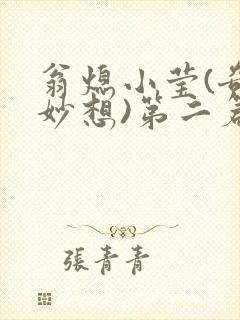 翁熄小莹(奇
妙想)第二名
張青青